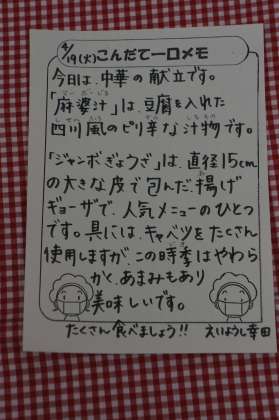 4/19(火)こんだて一口メモ
今日は、中華の献立です。
「麻婆汁」は、豆腐を入れた
四川風のピリ辛な汁物です。
「ジャンボぎょうざ」は、直径15cm
の大きな皮で包んだ、揚げ
ギョーザで、人気メニューのひとつ
です。具には、キャベツをたくさん
使用しますが、この時季はやわら
かく、あまみもあり
美味しいです。
たくさん食べましょう!! えいようし幸田